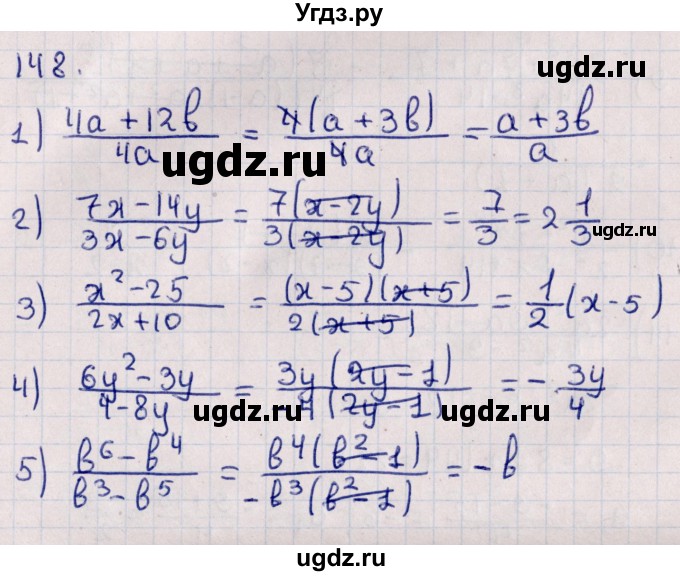 Угдз.ру
148.
ugdz.ru
1) (4a + 12b)/(4a) = 4(a + 3b)/(4a) = (a + 3b)/a
ugdz.ru
2) (7x - 14y)/(3x - 6y) = 7(x - 2y)/(3(x - 2y)) = 7/3 = 2 1/3
3) (x² - 25)/(2x + 10) = (x - 5)(x + 5)/(2(x + 5)) = 1/2 (x - 5)
4) (6y² - 3y)/(4 - 8y) = 3y(2y - 1)/(-4(2y - 1)) = - 3y/4
ugdz.ru
ugdz.ru
5) (b⁶ - b⁴)/(b³ - b⁵) = b⁴(b² - 1)/(-b³(b² - 1)) = - b
ugdz.ru
ugdz.ru